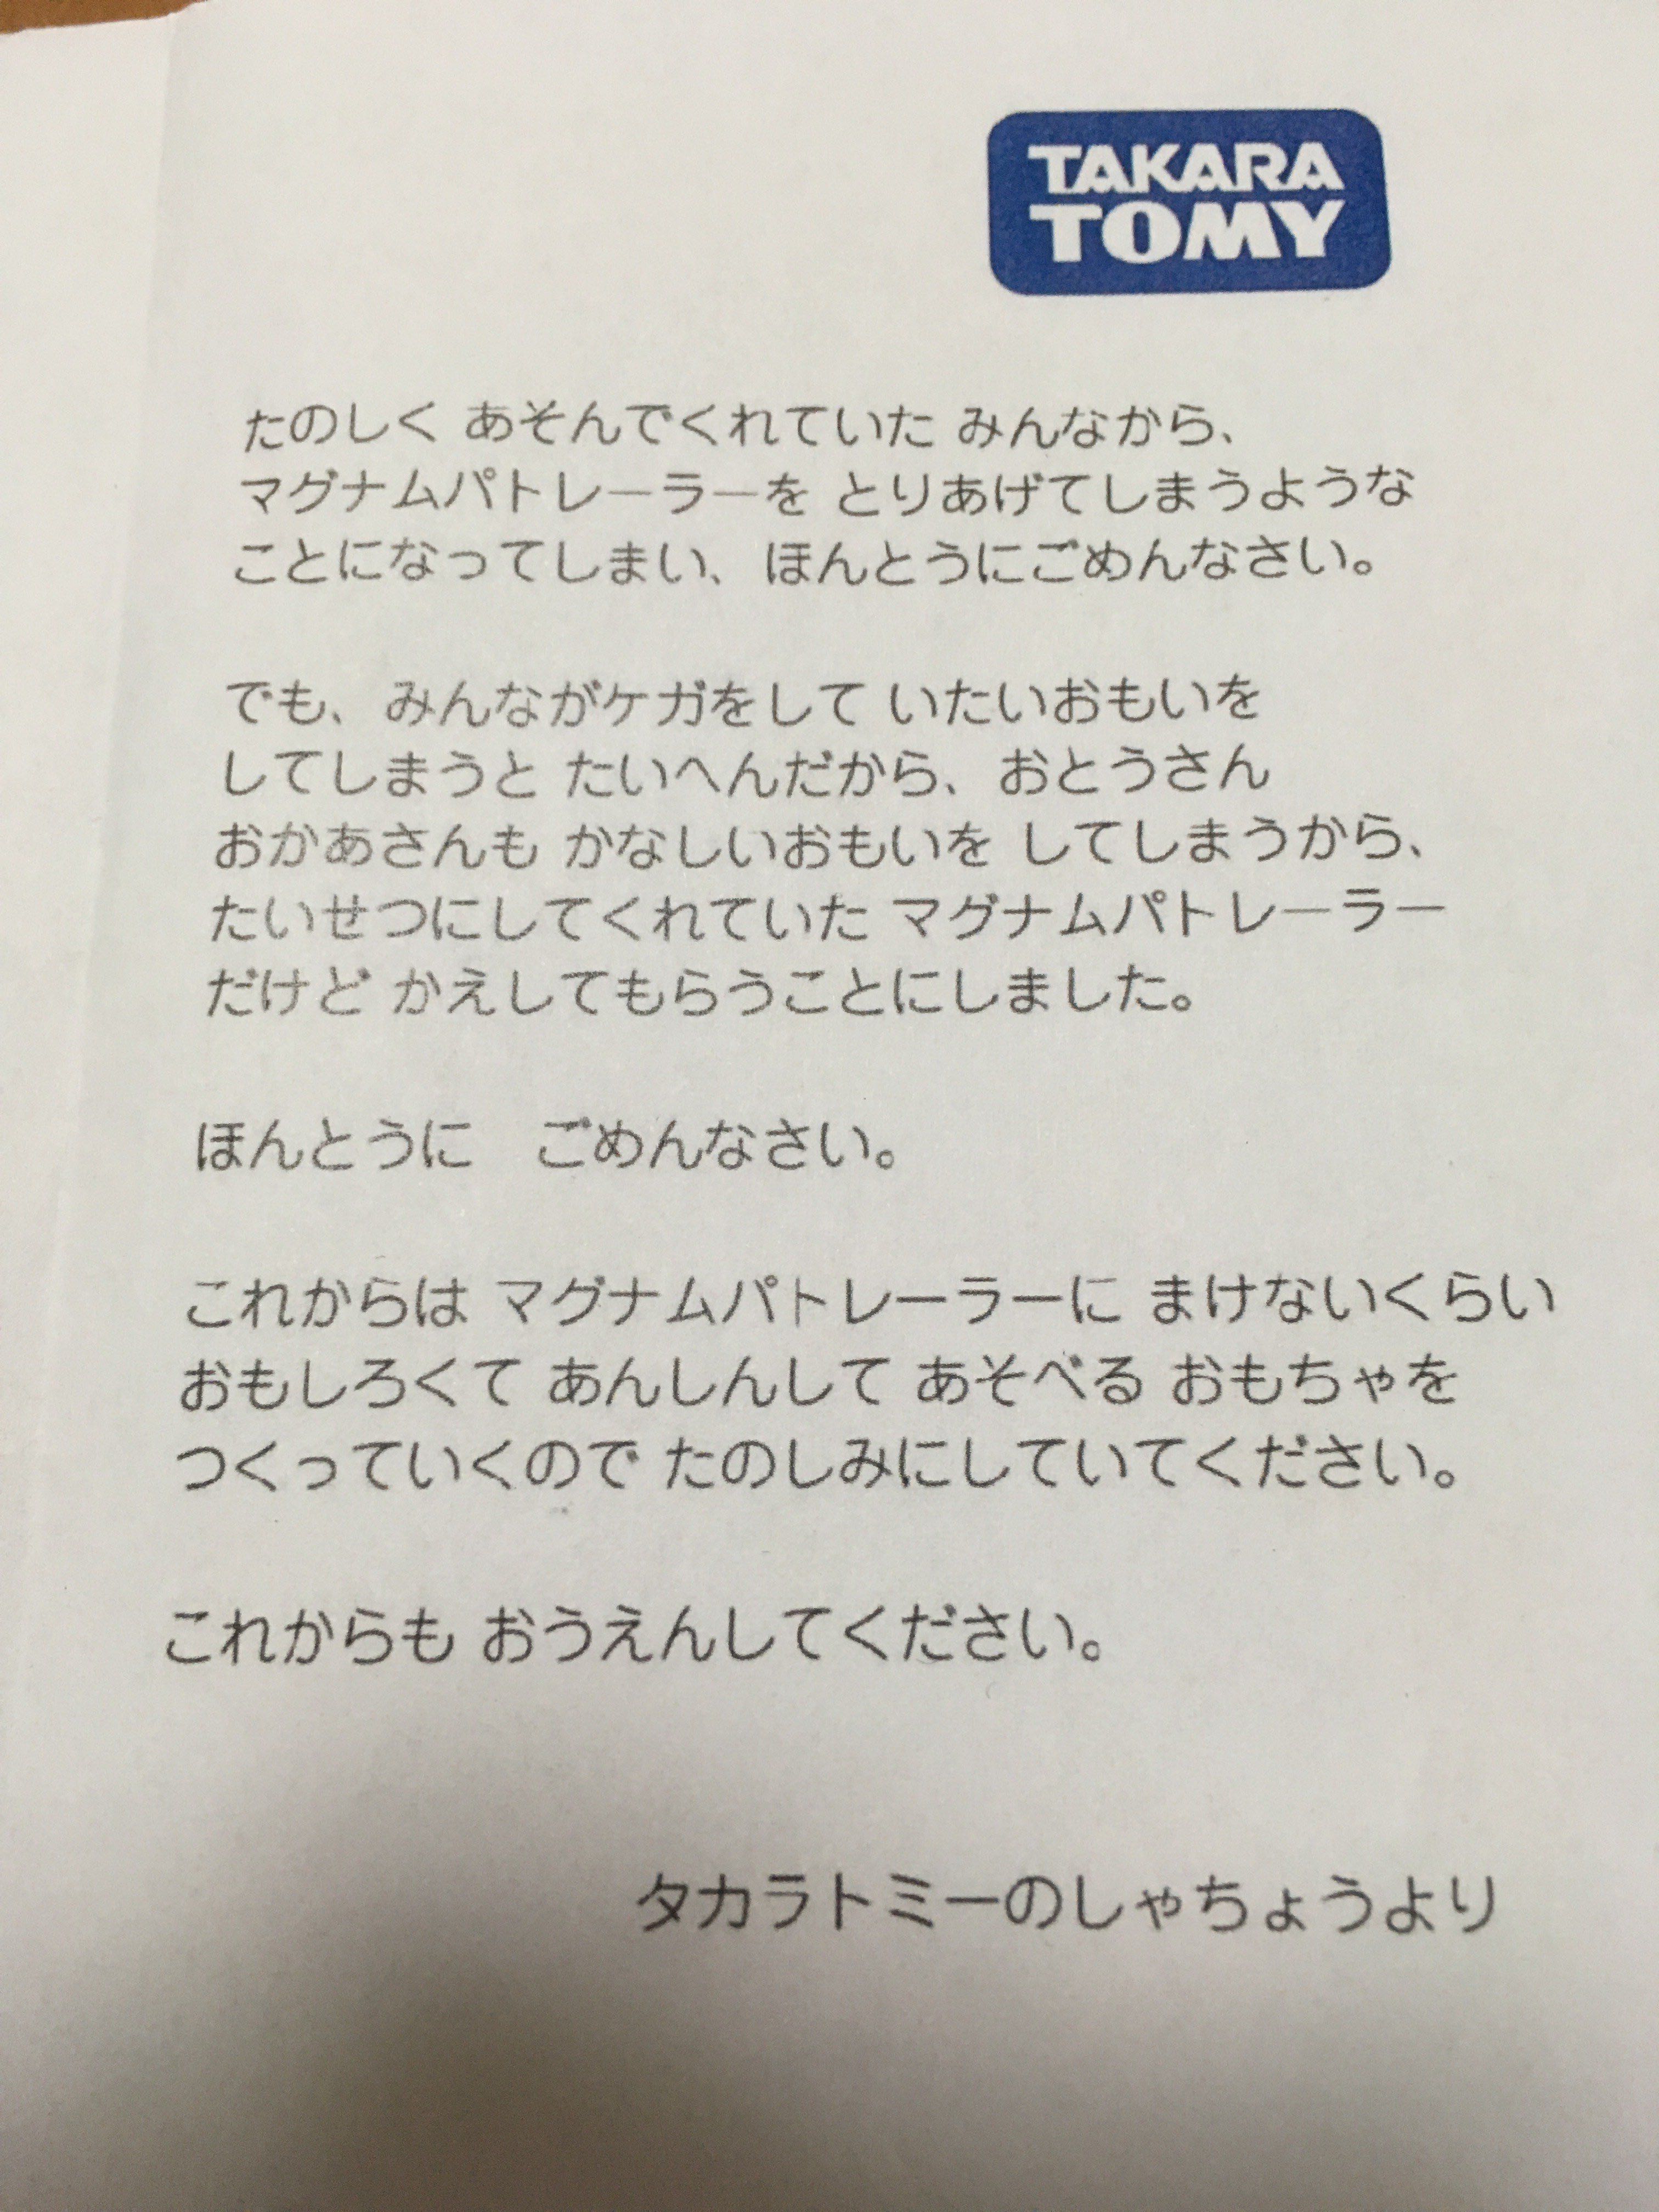 TAKARA
TOMY
たのしく あそんでくれていた みんなから、
マグナムパトレーラーを とりあげてしまうような
ことになってしまい、ほんとうにごめんなさい。
でも、みんながケガをして いたいおもいを
してしまうと たいへんだから、おとうさん
おかあさんも かなしいおもいを してしまうから、
たいせつにしてくれていた マグナムパトレーラー
だけど かえしてもらうことにしました。
ほんとうに　ごめんなさい。
これからは マグナムパトレーラーに まけないくらい
おもしろくて あんしんして あそべる おもちゃを
つくっていくので たのしみにしていてください。
これからも おうえんしてください。
タカラトミーのしゃちょうより